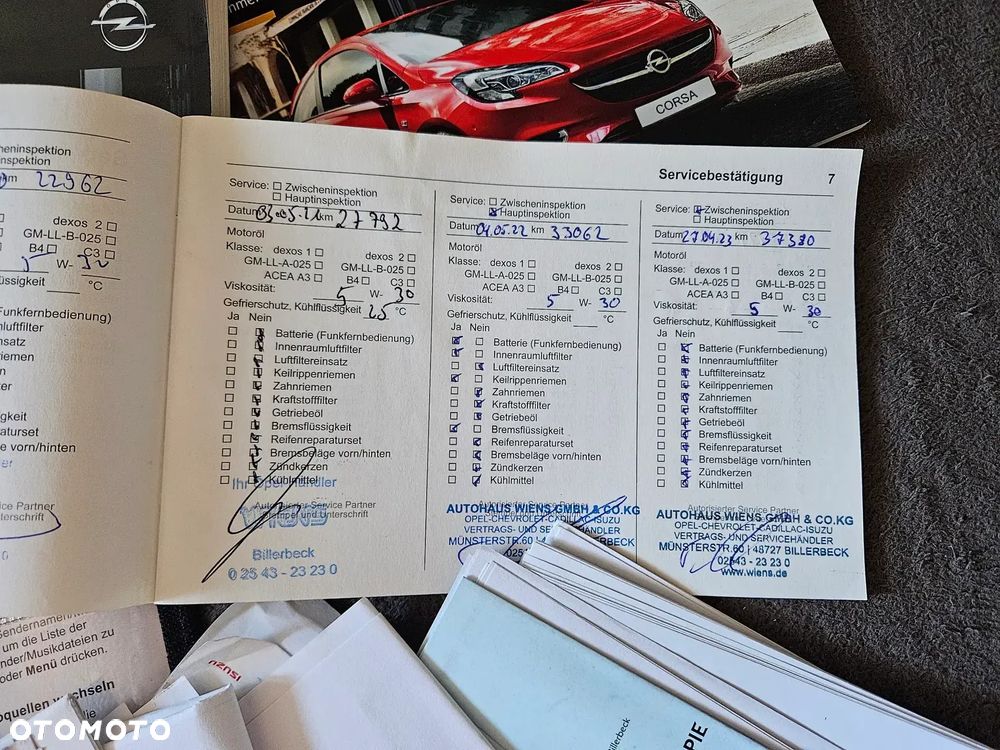 CORSA
Servicebestätigung 7
cheninspektion
nspektion
km 22962
dexos 2
GM-LL-B-025
B4 C3
W- 30
°C
Funkfernbedienung)
mluftfilter
einsatz
emen
sigkeit
araturset
äge vorn/hinten
Service: Zwischeninspektion
Hauptinspektion
Datum km 27792
Motoröl
Klasse: dexos 1 dexos 2
GM-LL-A-025 GM-LL-B-025
ACEA A3 B4 C3
Viskosität: 5 W- 30
Gefrierschutz, Kühlflüssigkeit 25 °C
Ja Nein
Batterie (Funkfernbedienung)
Innenraumluftfilter
Luftfiltereinsatz
Keilrippenriemen
Zahnriemen
Kraftstofffilter
Getriebeöl
Bremsflüssigkeit
Reifenreparaturset
Bremsbeläge vorn/hinten
Zündkerzen
Kühlmittel
Ihr Opel Händler
Autorisierter Service Partner
Stempel und Unterschrift
WIENS
Billerbeck
0 25 43 - 23 23 0
Service: Zwischeninspektion
Hauptinspektion
Datum 04.05.22 km 33062
Motoröl
Klasse: dexos 1 dexos 2
GM-LL-A-025 GM-LL-B-025
ACEA A3 B4 C3
Viskosität: 5 W- 30
Gefrierschutz, Kühlflüssigkeit °C
Ja Nein
Batterie (Funkfernbedienung)
Innenraumluftfilter
Luftfiltereinsatz
Keilrippenriemen
Zahnriemen
Kraftstofffilter
Getriebeöl
Bremsflüssigkeit
Reifenreparaturset
Bremsbeläge vorn/hinten
Zündkerzen
Kühlmittel
Autorisierter Service Partner
AUTOHAUS WIENS GMBH & CO.KG
OPEL-CHEVROLET-CADILLAC-ISUZU
VERTRAGS- UND SERVICEHÄNDLER
MÜNSTERSTR.60 | 48727 BILLERBECK
Service: Zwischeninspektion
Hauptinspektion
Datum 27.04.23 km 37380
Motoröl
Klasse: dexos 1 dexos 2
GM-LL-A-025 GM-LL-B-025
ACEA A3 B4 C3
Viskosität: 5 W- 30
Gefrierschutz, Kühlflüssigkeit °C
Ja Nein
Batterie (Funkfernbedienung)
Innenraumluftfilter
Luftfiltereinsatz
Keilrippenriemen
Zahnriemen
Kraftstofffilter
Getriebeöl
Bremsflüssigkeit
Reifenreparaturset
Bremsbeläge vorn/hinten
Zündkerzen
Kühlmittel
AUTOHAUS WIENS GMBH & CO.KG
OPEL-CHEVROLET-CADILLAC-ISUZU
VERTRAGS- UND SERVICEHÄNDLER
MÜNSTERSTR.60 | 48727 BILLERBECK
02543 - 23 23 0
www.wiens.de
vice Partner
terschrift
Sendernamen/
um die Liste der
nder/Musikdateien zu
oder Menü drücken.
oquellen wechseln
ISUZU
Billerbeck
PIE
OTOMOTO